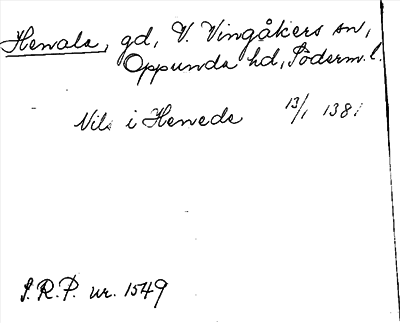 Henala, gd, V. Vingåkers sn,
Oppunda hd, Söderm. l.
Nils i Henede 13/1 1381
S.R.P. nr. 1549